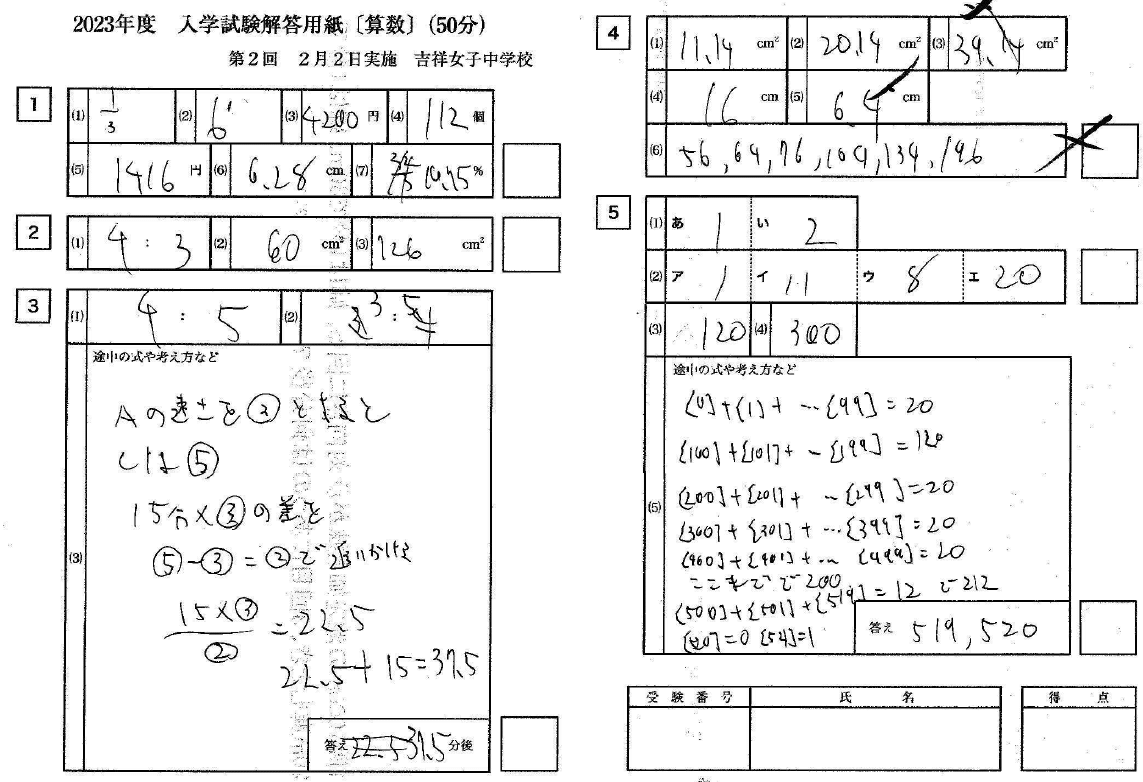 2023年度 入学試験解答用紙〔算数〕(50分)
第2回 2月2日実施 吉祥女子中学校
1
(1) 1/3 (2) 6 (3) 4200 円 (4) 112 個
(5) 1416 円 (6) 6.28 cm (7) 10.75 %
2
(1) 4 : 3 (2) 60 cm² (3) 126 cm²
3
(1) 4 : 5 (2) 3 : 5
途中の式や考え方など
(3)
Aの速さを③とすると
Cは⑤
15分×③の差を
⑤-③=②で追いかける
15×③/② =22.5
22.5+15=37.5
答え 37.5 分後
4
(1) 11.14 cm² (2) 20.14 cm² (3) 39.14 cm²
(4) 16 cm (5) 6.4 cm
(6) 56,64,76,104,134,196
5
(1) あ 1 い 2
(2) ア 1 イ 11 ウ 8 エ 20
(3) 120 (4) 300
途中の式や考え方など
(5)
[0]+[1]+ …[99]=20
[100]+[101]+ …[199]=120
[200]+[201]+ …[299]=20
[300]+[301]+ …[399]=20
[400]+[401]+ … [499]=20
ここまでで200
[500]+[501]+[519]=12 で212
答え 519,520
受験番号 氏名 得点